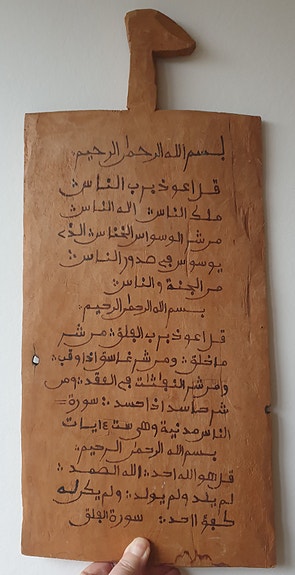 بسم الله الرحمن الرحيم
قل اعوذ برب الناس
ملك الناس اله الناس
من شر الوسواس الخناس الذے
يوسوس في صدور الناس
من الجنة والناس
بسم الله الرحمن الرحيم
قل اعوذ برب الفلق من شر
ما خلق ومن شر غاسق اذا وقب
ومن شر النفاثات في العقد ومن
شر حاسد اذا حسد سورة
الناس مدنية وهي ست ايات
بسم الله الرحمن الرحيم
قل هو الله احد الله الصمد
لم يلد ولم يولد ولم يكن له
كفوا احد سورة الفلق